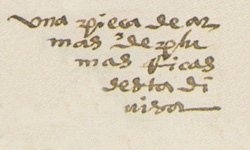 una pieça de ar
mas de plu
mas Ricas
desta di
uisa